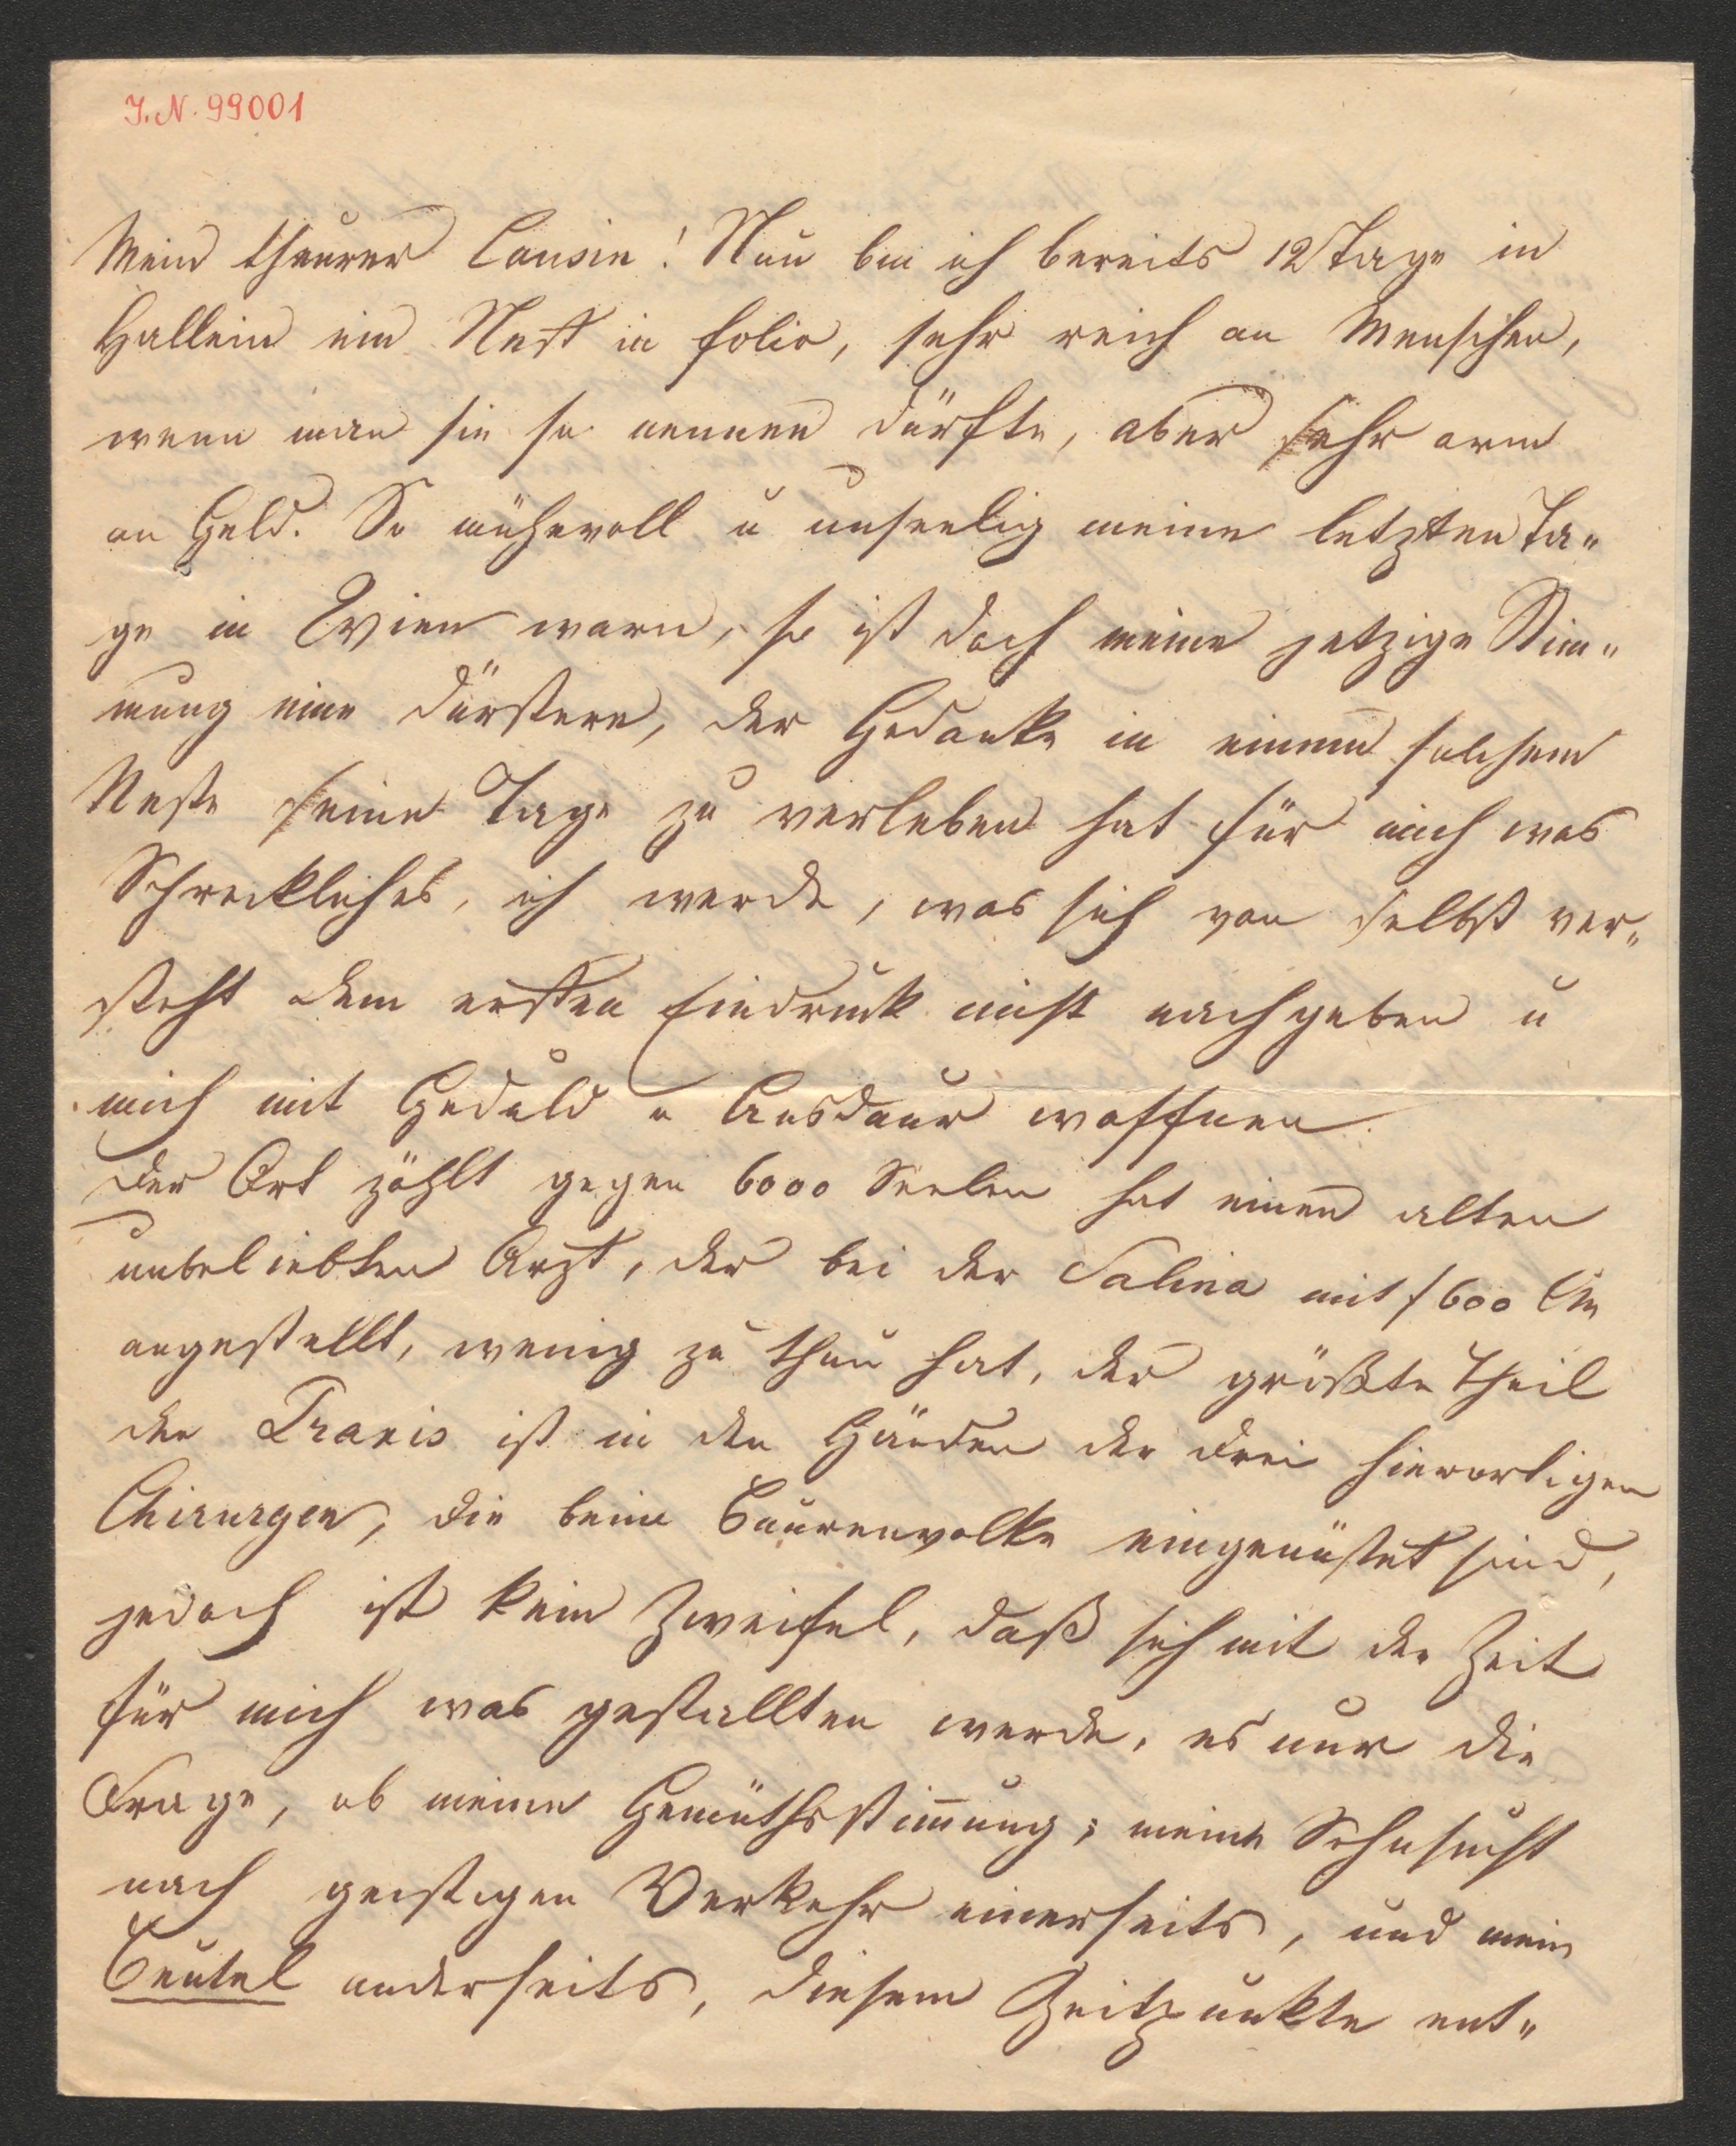 J.N. 99001
Mein theurer Cousin! Nun bin ich bereits 12 Tage in
Hallein ein Nest in folio, sehr reich an Menschen,
wenn man sie so nennen dürfte, aber sehr arm
an Geld. So mühevoll u unseelig meine letzten Ta„
ge in Wien warn, so ist doch meine jetzige Stim„
mung eine dürstere, der Gedanke in einem solchem
Neste seine Tage zu verleben hat für mich was
Schreckliches, ich werde, was sich von selbst ver„
steht dem ersten Eindruck nicht nachgeben u
mich mit Geduld u Ausdaur waffnen.
Der Ort zählt gegen 6000 Seelen hat einen alten
unbeliebten Arzt, der bei der Salina mit f 600 CM
angestellt, wenig zu thun hat, der größte Theil
der Praxis ist in den Händen der drei hierortigen
Chirurgen, die beim Baurenvolke eingenistet sind,
jedoch ist kein Zweifel, daß sich mit der Zeit
für mich was gestallten werde, es nur die
Frage, ob meine Gemüthsstim̄ung, meine Sehnsucht
nach geistigen Verkehr einerseits, und mein
Beutel anderseits, diesem Zeitpunkte ent„